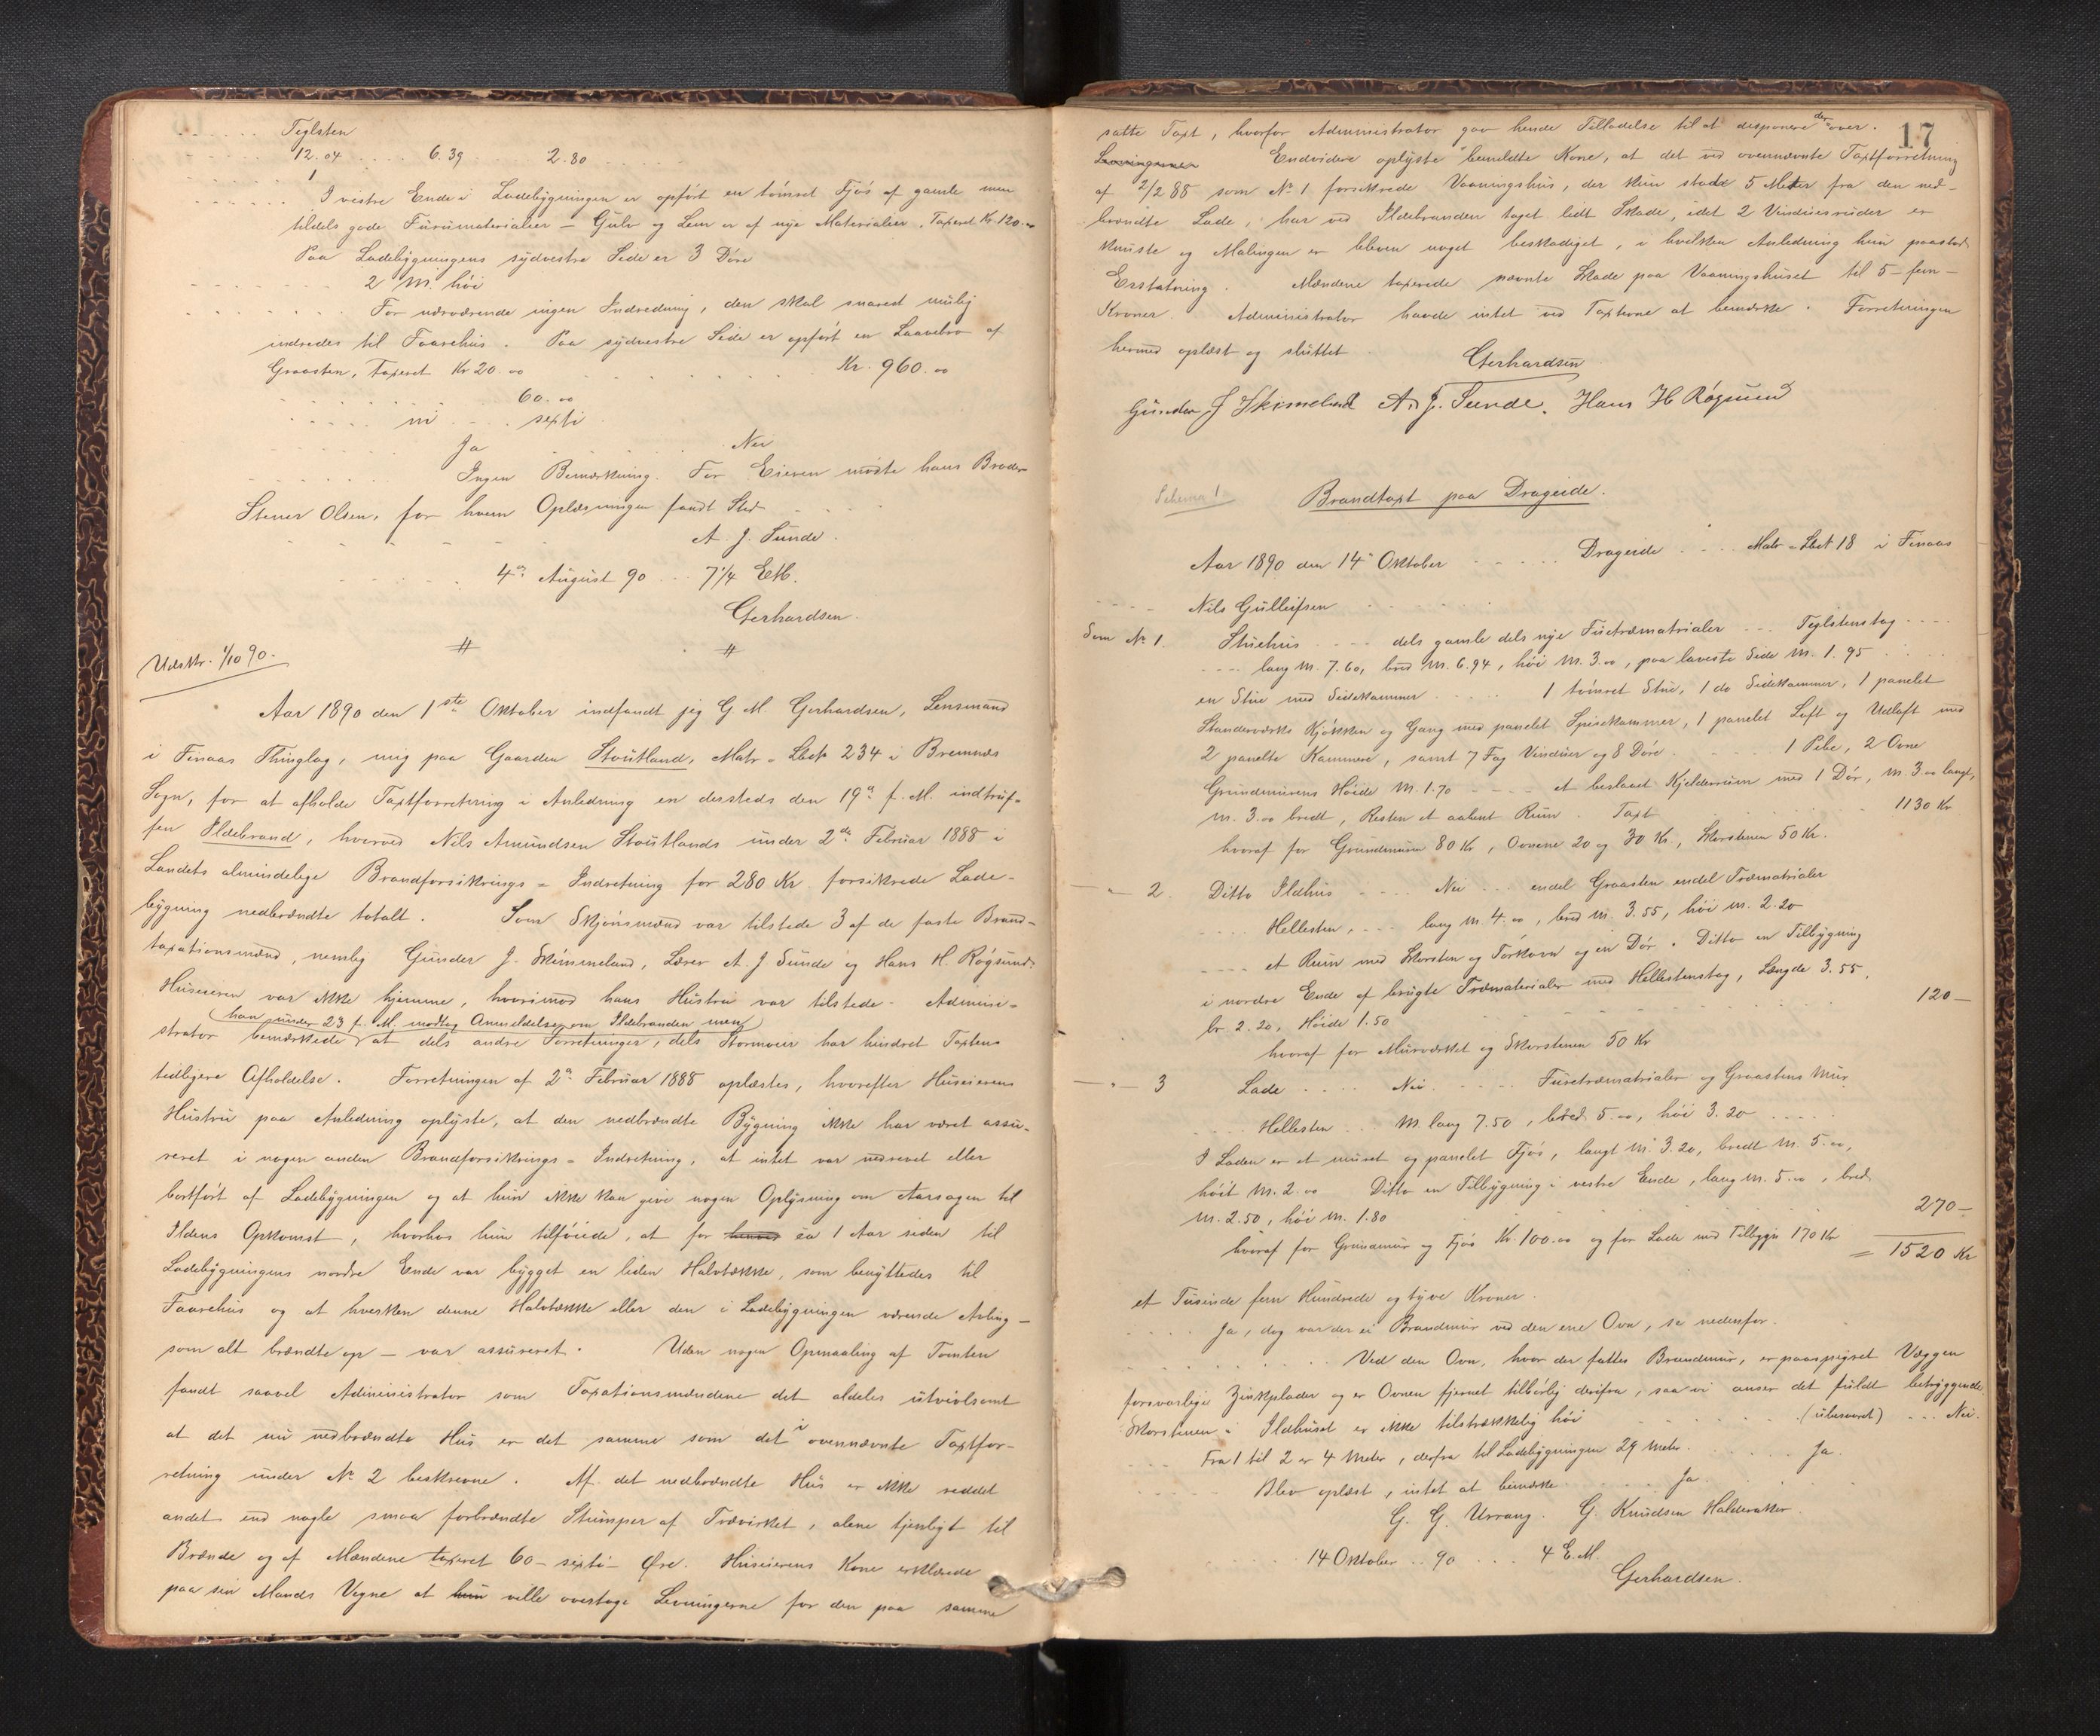 Teglsten
12.04 ..... 6.39 ..... 2.80 .....
1
I vestre Ende i Ladebygningen er opført en tømret Fjøs af gamle men
tildels gode Furumaterialier – Gulv og Lem er af nye Materialier. Taxeret Kr. 120.00
Paa Ladebygningens sydvestre Side er 3 Døre
2 M. høi
For nærværende ingen Indredning, den skal snarest mulig
indredes til Faarehus. Paa sydvestre Side er opført en Laavebro af
Graasten, taxeret Kr 20.00 ..... Kr. 960.00
60.00
ni ..... sexti
Ja ..... Nei
Ingen Bemærkning. For Eieren mødte hans Broder
Stener Olsen, for hvem Oplæsningen fandt Sted
A. J. Sunde.
4de August 90 ... 7 1/4 EM.
Gerhardsen.
# #
Udskr. 1/10 90.
Aar 1890 den 1ste Oktober indfandt jeg G. M. Gerhardsen, Lensmand
i Finaas Thinglag, mig paa Gaarden Stoutland, Matr = Lbnr 234 i Bremnæs
Sogn, for at afholde Taxtforretning i Anledning en dersteds den 19de f. M. indtruf-
fen Ildebrand, hvorved Nils Amundsen Stoutlands under 2den Februar 1888 i
Landets almindelige Brandforsikrings = Indretning for 280 Kr. forsikrede Lade-
bygning nedbrændte totalt. Som Skjønsmænd var tilstede 3 af de faste Brand-
taxationsmænd, nemlig Gunder J. Skimmeland, Lærer A. J Sunde og Hans H. Røgsund.
Huseieren var ikke hjemme, hvorimod hans Hustru var tilstede – Admini-
(han under 23 f. M. modtog Anmeldelse om Ildebranden men)
strator bemærkede at dels andre Forretninger, dels Stormveir har hindret Taxtens
tidligere Afholdelse. Forretningen af 2den Februar 1888 oplæstes, hvorefter Huseierens
Hustru paa Anledning oplyste, at den nedbrændte Bygning ikke har været assu-
reret i nogen anden Brandforsikrings = Indretning, at intet var nedrevet eller
bortført af Ladebygningen og at hun ikke kan give nogen Oplysning om Aarsagen til
Ildens Opkomst, hvorhos hun tilføiede, at for ca 1 Aar siden til
Ladebygningens nordre Ende var bygget en liden Halvtække, som benyttedes til
Faarehus og at hverken denne Halvtække eller den i Ladebygningen værende Avling –
som alt brændte op – var assureret. Uden nogen Opmaaling af Tomten
fandt saavel Administrator som Taxationsmændene det aldeles utvivlsomt
at det nu nedbrændte Hus er det samme som det i ovennævnte Taxtfor-
retning under No 2 beskrevne. Af det nedbrændte Hus er ikke reddet
andet end nogle smaa forbrændte Stumper af Trævirket, alene tjenligt til
Brænde og af Mændene taxeret 60 – sexti – Øre. Huseierens Kone erklærede
paa sin Mands Vegne at hun ville overtage Levningerne for den paa samme
17
satte Taxt, hvorfor Administrator gav hende Tilladelse til at disponere derover.
Levningerne Endvidere oplyste bemeldte Kone, at det ved ovennævnte Taxtforretning
af 2/2 88 som No 1 forsikrede Vaaningshus, der kun stode 5 Meter fra den ned-
brændte Lade, har ved Ildebranden taget lidt Skade, idet 2 Vinduesruder er
knuste og Malingen er bleven noget beskadiget, i hvilken Anledning hun paastod
Erstatning. Mændene taxerede nævnte Skade paa Vaaningshuset til 5 – fem –
Kroner. Administrator havde intet ved Taxterne at bemærke. Forretningen
hermed oplæst og sluttet
Gerhardsen
Gunder J Skimeland A. J. Sunde. Hans H Røgsund
Schema 1.
Brandtaxt paa Drageide.
Aar 1890 den 14de Oktober ..... Drageide .... Matr = Lbnr 18 i Finaas
Nils Gulleifsen
Som No 1. Stuehus ..... dels gamle dels nye Furetræmatrialer ... Teglstenstag ....
.... lang M. 7.60, bred M. 6.94, høi M. 3.00, paa laveste Side M. 1.95
en Stue med Sidekammer ..... 1 tømret Stue, 1 do Sidekammer, 1 panelet
Standerværks Kjøkken og Gang med panelet Spisekammer, 1 panelet Loft og Udloft med
2 panelte Kammere, samt 7 Fag Vinduer og 8 Døre ..... 1 Pibe, 2 Ovne
Grundmurens Høide M. 1.70 ..... et beslaaet Kjelderrum med 1 Dør, M. 3.00 langt,
M. 3.00 bredt, Resten et aabent Rum. Taxt ..... 1130 Kr
hvoraf for Grundmuren 80 Kr, Ovnene 20 og 30 Kr, Skorstenen 50 Kr.
– " – 2. Ditto Ildhus ..... Nei ... endel Graasten endel Træmatrialer
.... Hellesten, .... lang M. 4.00, bred M. 3.55, høi M. 2.20
.... et Rum med Skorsten og Tørkovn og en Dør. Ditto en Tilbygning
i nordre Ende af brugte Træmaterialer med Hellestenstag, Længde 3.55,
br. 2.20, Høide 1.50 ..... 120 –
hvoraf for Murværket og Skorstenen 50 Kr
– " – 3 Lade ..... Nei ..... Furetræmatrialer og Graastens Mur
.... Hellesten ... M. lang 7.50, bred 5.00, høi 3.20 .....
I Laden er et muret og panelet Fjøs, langt M. 3.20, bredt M. 5.00,
høit M. 2.00 Ditto en Tilbygning i vestre Ende, lang M. 5.00, bred
M. 2.50, høi M. 1.80 ..... 270 –
hvoraf for Grundmur og Fjøs Kr. 100.00 og for Lade med Tilbygn 170 Kr = 1520 Kr
et Tusinde fem Hundrede og tyve Kroner.
.... Ja, dog var der ei Brandmur ved den ene Ovn, se nedenfor.
..... Ved den Ovn, hvor der fattes Brandmur, er paaspigret Væggen
forsvarlige Zinkplader og er Ovnen fjernet tilbørlig derifra, saa vi anser det fuldt betryggende.
Skorstenen i Ildhuset er ikke tilstrækkelig høi ..... (ubesvaret) ... Nei.
.... Fra 1 til 2 er 4 Meter, derfra til Ladebygningen 29 Meter. .... Ja.
.... Blev oplæst, intet at bemærke ..... Ja.
G. G. Urrang. G. Knudsen Halderaker.
14 Oktober .. 90 ... 4 E.M.
Gerhardsen.